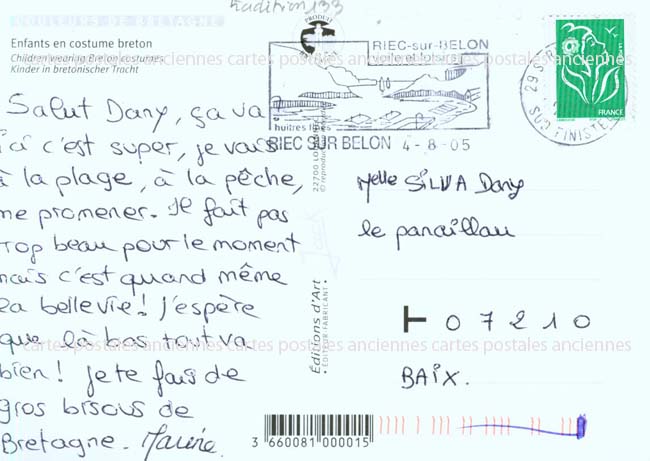 COULEURS DE BRETAGNE
tradition 133
PRODUIT
Enfants en costume breton
Children wearing Breton costumes
Kinder in bretonischer Tracht
RIEC-sur-BELON
huîtres
RIEC SUR BELON 4-8-05
29 S
SUD FINISTE
FRANCE
cartes postales anciennes cartes postales anciennes cartes postales anciennes
Salut Dany, ça va
ici c'est super, je vais
à la plage, à la pêche,
me promener. Il fait pas
trop beau pour le moment
mais c'est quand même
la belle vie! J'espère
que là bas tout va
bien! Je te fais de
gros bisous de
Bretagne. Marine
22700
© reproduction interdite
Éditions d'Art
• ÉDITEUR-FABRICANT •
Melle SILVA Dany
le panaillau
07210
BAIX.
cartes postales anciennes cartes postales anciennes cartes postales anciennes
3 660081 000015